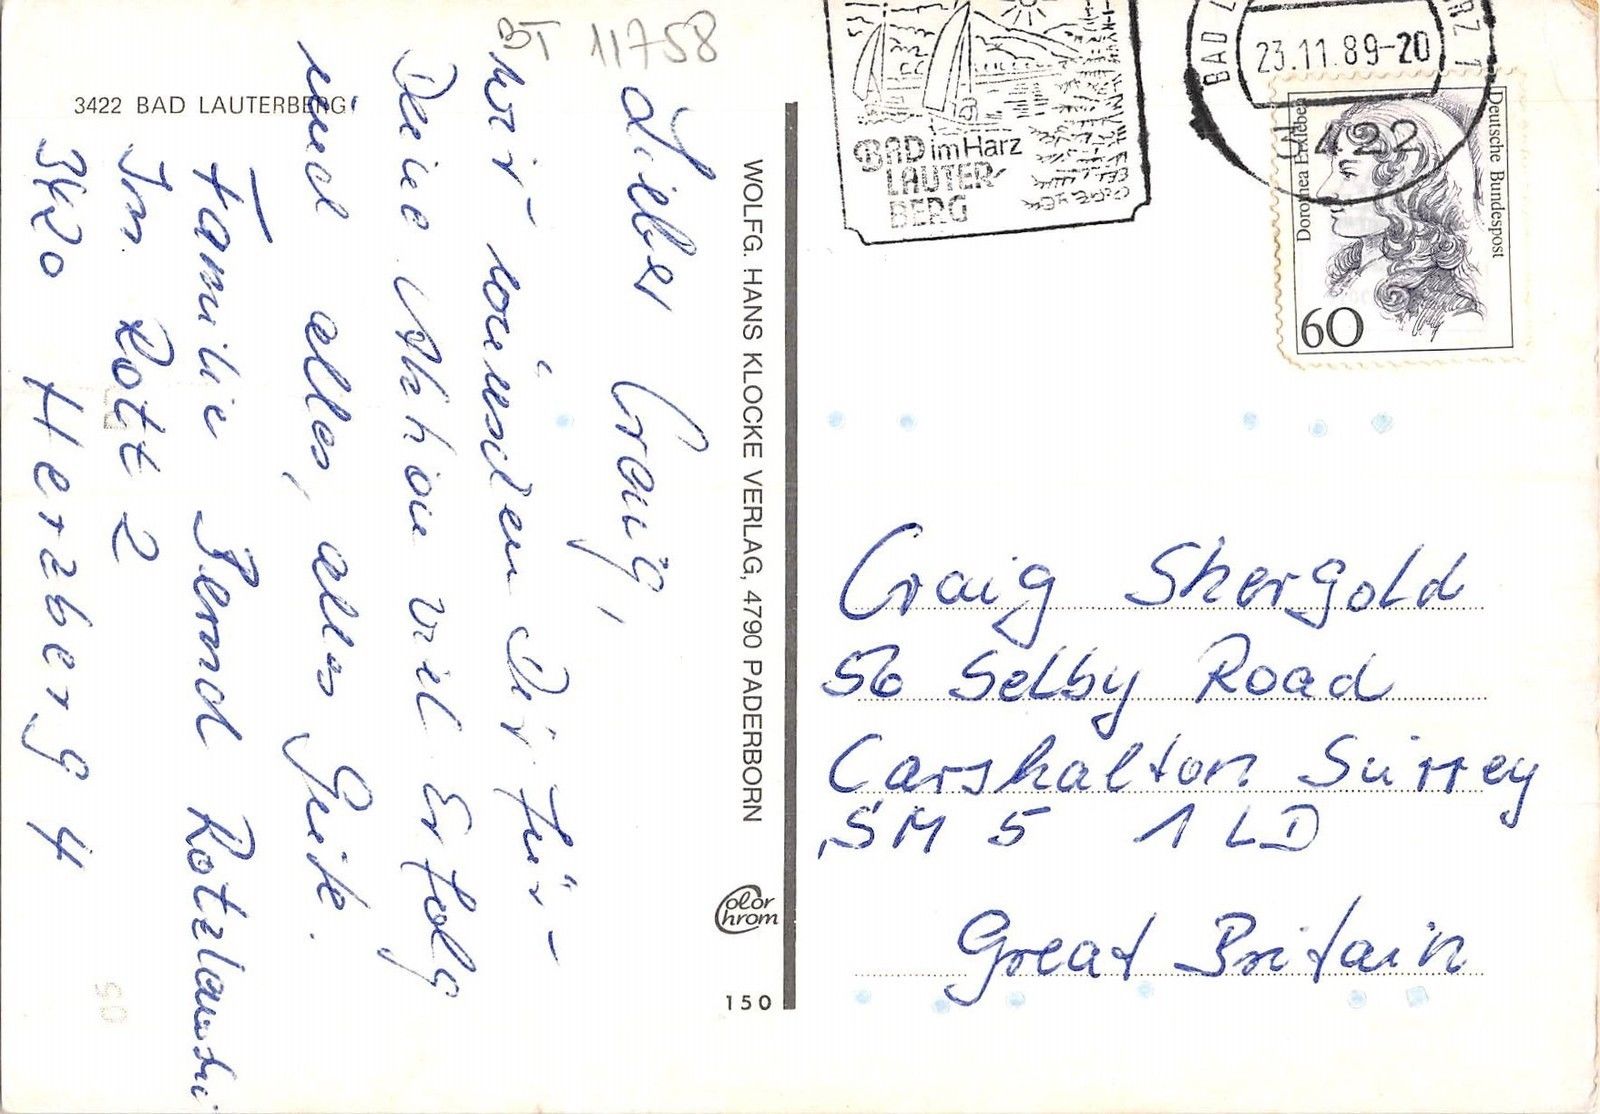 BT 11758
3422 BAD LAUTERBERG
Lieber Craig,
wir wünschen Dir für
Deine Aktion viel Erfolg
und alles, alles Gute.
Familie Bernd
Im Rott 2
3420 Herzberg 4
WOLFG. HANS KLOCKE VERLAG, 4790 PADERBORN
Color Chrom
150
BAD im Harz
LAUTER-
BERG
23.11.89-20
422
Deutsche Bundespost
Dorothea Erxleben
60
Craig Shergold
56 Selby Road
Carshalton Surrey
SM 5 1 LD
Great Britain
05